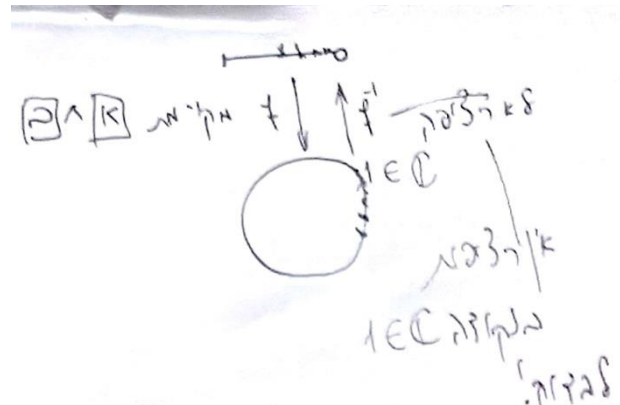 f מקיימת א ∧ ב
f⁻¹ לא רציפה
1 ∈ ℂ
אי רציפות
בנקודה 1 ∈ ℂ
לבדוק!